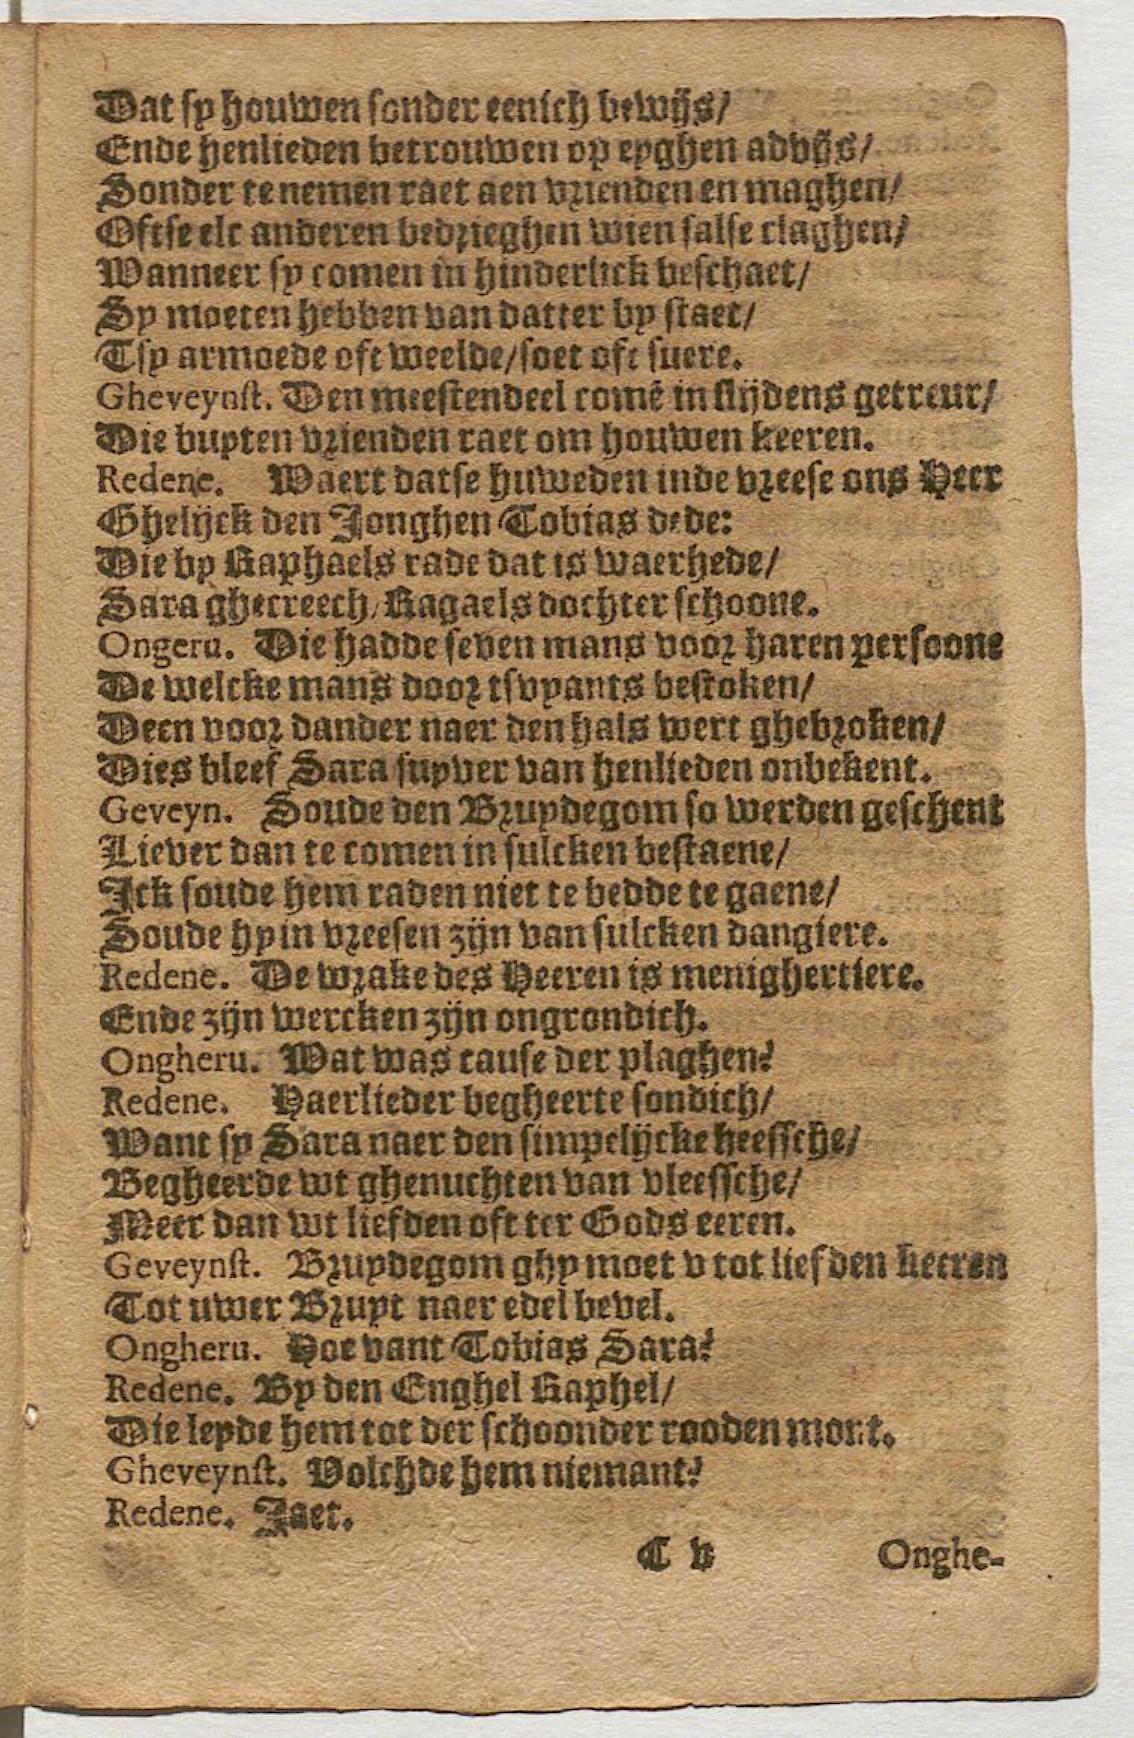 Dat sy houwen sonder eenich bewijs/
Ende henlieden betrouwen op eyghen advijs/
Sonder te nemen raet aen vrienden en maghen/
Oftse elc anderen bedrieghen wien salse claghen/
Wanneer sy comen in hinderlick beschaet/
Sy moeten hebben van datter by staet/
Tsy armoede oft weelde/soet oft suere.
Gheveynst. Den meestendeel comẽ in slijdens getreur/
Die buyten vrienden raet om houwen keeren.
Redene. Waert datse huweden inde vreese ons Heer
Ghelijck den Jonghen Tobias dede:
Die by Raphaels rade dat is waerhede/
Sara ghecreech/Ragaels dochter schoone.
Ongeru. Die hadde seven mans voor haren persoone
De welcke mans door tsvyants bestoken/
Deen voor dander naer den hals wert ghebroken/
Dies bleef Sara suyver van henlieden onbekent.
Geveyn. Soude den Bruydegom so werden geschent
Liever dan te comen in sulcken bestaene/
Ick soude hem raden niet te bedde te gaene/
Soude hy in vreesen zijn van sulcken dangiere.
Redene. De wrake des Heeren is menighertiere.
Ende zijn wercken zijn ongrondich.
Ongheru. Wat was cause der plaghen?
Redene. Haerlieder begheerte sondich/
Want sy Sara naer den simpelijcke heessche/
Begheerde wt ghenuchten van vleessche/
Meer dan wt liefden oft ter Gods eeren.
Geveynst. Bruydegom ghy moet v tot liefden keeren
Tot uwer Bruyt naer edel bevel.
Ongheru. Hoe vant Tobias Sara?
Redene. By den Enghel Raphel/
Die leyde hem tot der schoonder rooden mont.
Gheveynst. Volchde hem niemant?
Redene. Jaet.
C v Onghe-